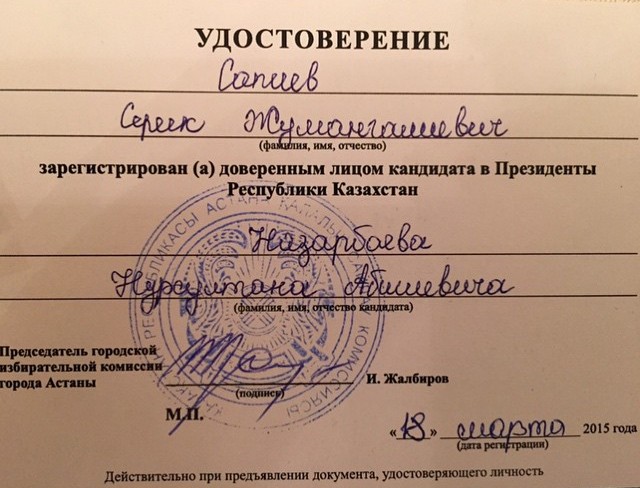 УДОСТОВЕРЕНИЕ
Сапиев
Серик Жумангалиевич
(фамилия, имя, отчество)
зарегистрирован (а) доверенным лицом кандидата в Президенты
Республики Казахстан
Назарбаева
Нурсултана Абишевича
(фамилия, имя, отчество кандидата)
Председатель городской
избирательной комиссии
города Астаны
И. Жалбиров
(подпись)
М.П.
«18» марта 2015 года
(дата регистрации)
Действительно при предъявлении документа, удостоверяющего личность
АСТАНА ҚАЛАЛЫҚ
КОМИССИЯСЫ